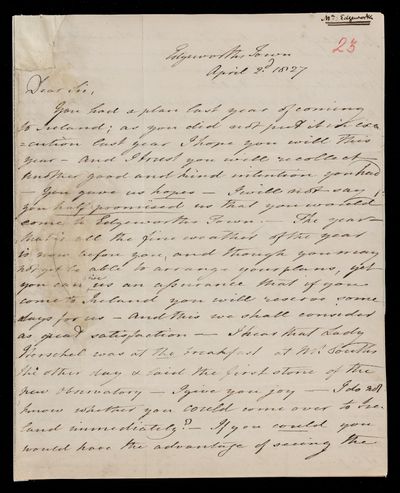 Mrs. Edgeworth
23
Edgeworths Town
April 2d 1827
Dear Sir,
You had a plan last year of coming
to Ireland; as you did not put it in exe
-cution last year I hope you will this
year - And I trust you will recollect
another good and kind intention you had
- You gave us hopes - I will not say
you half promised us that you would
come to Edgeworths Town - The year -
that is all the fine weather of the year
is now before you, and though you may
not yet be able to arrange your plans, yet
you can give us an assurance that if you
come to Ireland you will reserve some
days for us - And this we shall consider
as great satisfaction - I hear that Lady
Herschel was at the breakfast at Mr. South's
the other day & laid the first stone of the
new Observatory - I give you joy - I do not
know whether you could come over to Ire
land immediately? - If you could you
would have the advantage of seeing the